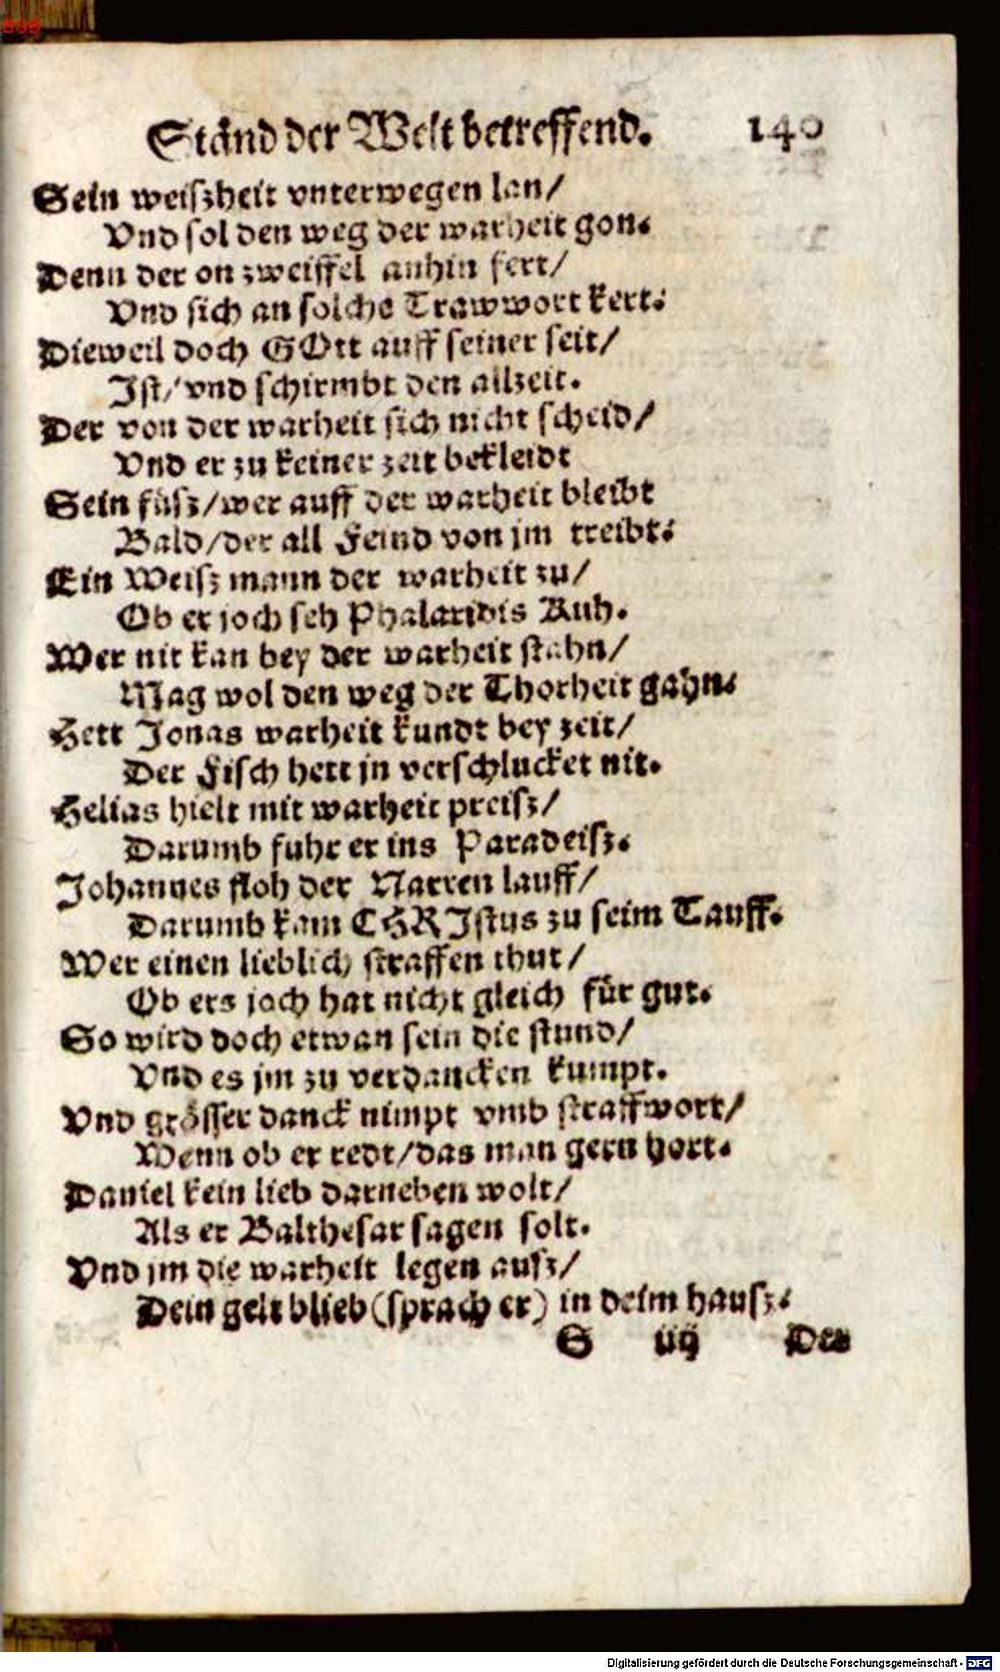 BSB
Ständ der Welt betreffend. 140
Sein weißheit vnterwegen lan/
Vnd sol den weg der warheit gon.
Denn der on zweiffel anhin fert/
Vnd sich an solche Trawwort kert.
Dieweil doch GOtt auff seiner seit/
Ist/ vnd schirmbt den allzeit.
Der von der warheit sich nicht scheid/
Vnd er zu keiner zeit bekleidt
Sein füsz/wer auff der warheit bleibt
Bald/der all Feind von jm treibt.
Ein Weisz mann der warheit zu/
Ob er joch seh Phalaridis Kuh.
Wer nit kan bey der warheit stahn/
Mag wol den weg der Thorheit gahn.
Hett Jonas warheit kundt bey zeit/
Der Fisch hett jn verschlucket nit.
Helias hielt mit warheit preisz/
Darumb fuhr er ins Paradeisz.
Johannes floh der Narren lauff/
Darumb kam CHRIstus zu seim Tauff.
Wer einen lieblich straffen thut/
Ob ers joch hat nicht gleich für gut.
So wird doch etwan sein die stund/
Vnd es jm zu verdancken kumpt.
Vnd grösser danck nimpt vmb straffwort/
Wenn ob er redt/das man gern hort.
Daniel kein lieb darneben wolt/
Als er Balthesar sagen solt.
Vnd jm die warheit legen ausz/
Dein gelt blieb (sprach er) in deim hausz.
S iiij Der
Digitalisierung gefördert durch die Deutsche Forschungsgemeinschaft - DFG